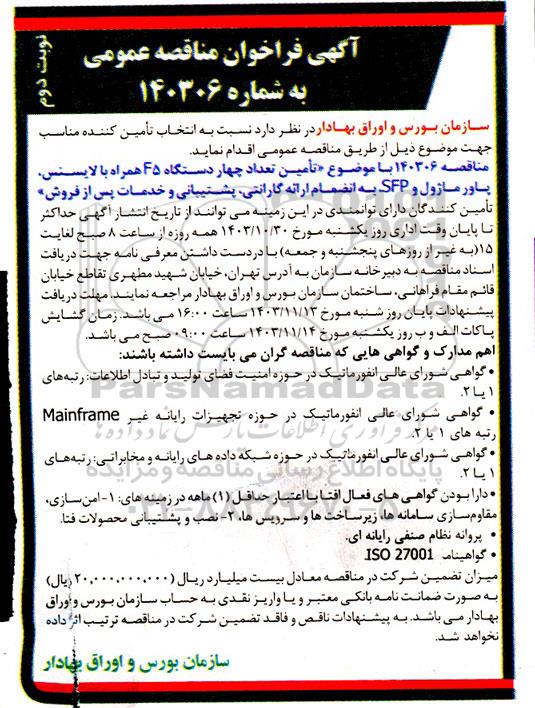 نوبت دوم
آگهی فراخوان مناقصه عمومی
به شماره ۱۴۰۳۰۶
سازمان بورس و اوراق بهادار در نظر دارد نسبت به انتخاب تأمین کننده مناسب
جهت موضوع ذیل از طریق مناقصه عمومی اقدام نماید.
مناقصه ۱۴۰۳۰۶ با موضوع «تأمین تعداد چهار دستگاه F5 همراه با لایسنس،
پاور ماژول و SFP به انضمام ارائه گارانتی، پشتیبانی و خدمات پس از فروش»
تأمین کنندگان دارای توانمندی در این زمینه می توانند از تاریخ انتشار آگهی حداکثر
تا پایان وقت اداری روز یکشنبه مورخ ۱۴۰۳/۱۰/۳۰ همه روزه از ساعت ۸ صبح لغایت
۱۵(به غیر از روزهای پنجشنبه و جمعه) با در دست داشتن معرفی نامه جهت دریافت
اسناد مناقصه به دبیرخانه سازمان به آدرس تهران، خیابان شهید مطهری تقاطع خیابان
قائم مقام فراهانی، ساختمان سازمان بورس و اوراق بهادار مراجعه نمایند. مهلت دریافت
پیشنهادات پایان روز شنبه مورخ ۱۴۰۳/۱۱/۱۳ ساعت ۱۶:۰۰ می باشد. زمان گشایش
پاکات الف و ب روز یکشنبه مورخ ۱۴۰۳/۱۱/۱۴ ساعت ۰۹:۰۰ صبح می باشد.
اهم مدارک و گواهی هایی که مناقصه گران می بایست داشته باشند:
• گواهی شورای عالی انفورماتیک در حوزه امنیت فضای تولید و تبادل اطلاعات: رتبه‌های
۱ یا ۲.
• گواهی شورای عالی انفورماتیک در حوزه تجهیزات رایانه غیر Mainframe
رتبه های ۱ یا ۲.
• گواهی شورای عالی انفورماتیک در حوزه شبکه داده های رایانه و مخابراتی: رتبه‌های
۱ یا ۲.
• دارا بودن گواهی های فعال افتا با اعتبار حداقل (۱) ماهه در زمینه های: ۱- امن‌سازی،
مقاوم‌سازی سامانه‌ها، زیرساخت ها و سرویس ها، ۲- نصب و پشتیبانی محصولات فتا.
• پروانه نظام صنفی رایانه ای.
• گواهینامه ISO 27001.
میزان تضمین شرکت در مناقصه معادل بیست میلیارد ریال (۲۰,۰۰۰,۰۰۰,۰۰۰ ریال)
به صورت ضمانت نامه بانکی معتبر و یا واریز نقدی به حساب سازمان بورس و اوراق
بهادار می باشد. به پیشنهادات ناقص و فاقد تضمین شرکت در مناقصه ترتیب اثر داده
نخواهد شد.
سازمان بورس و اوراق بهادار
ParsNamadData
پایگاه اطلاع رسانی مناقصه و مزایده